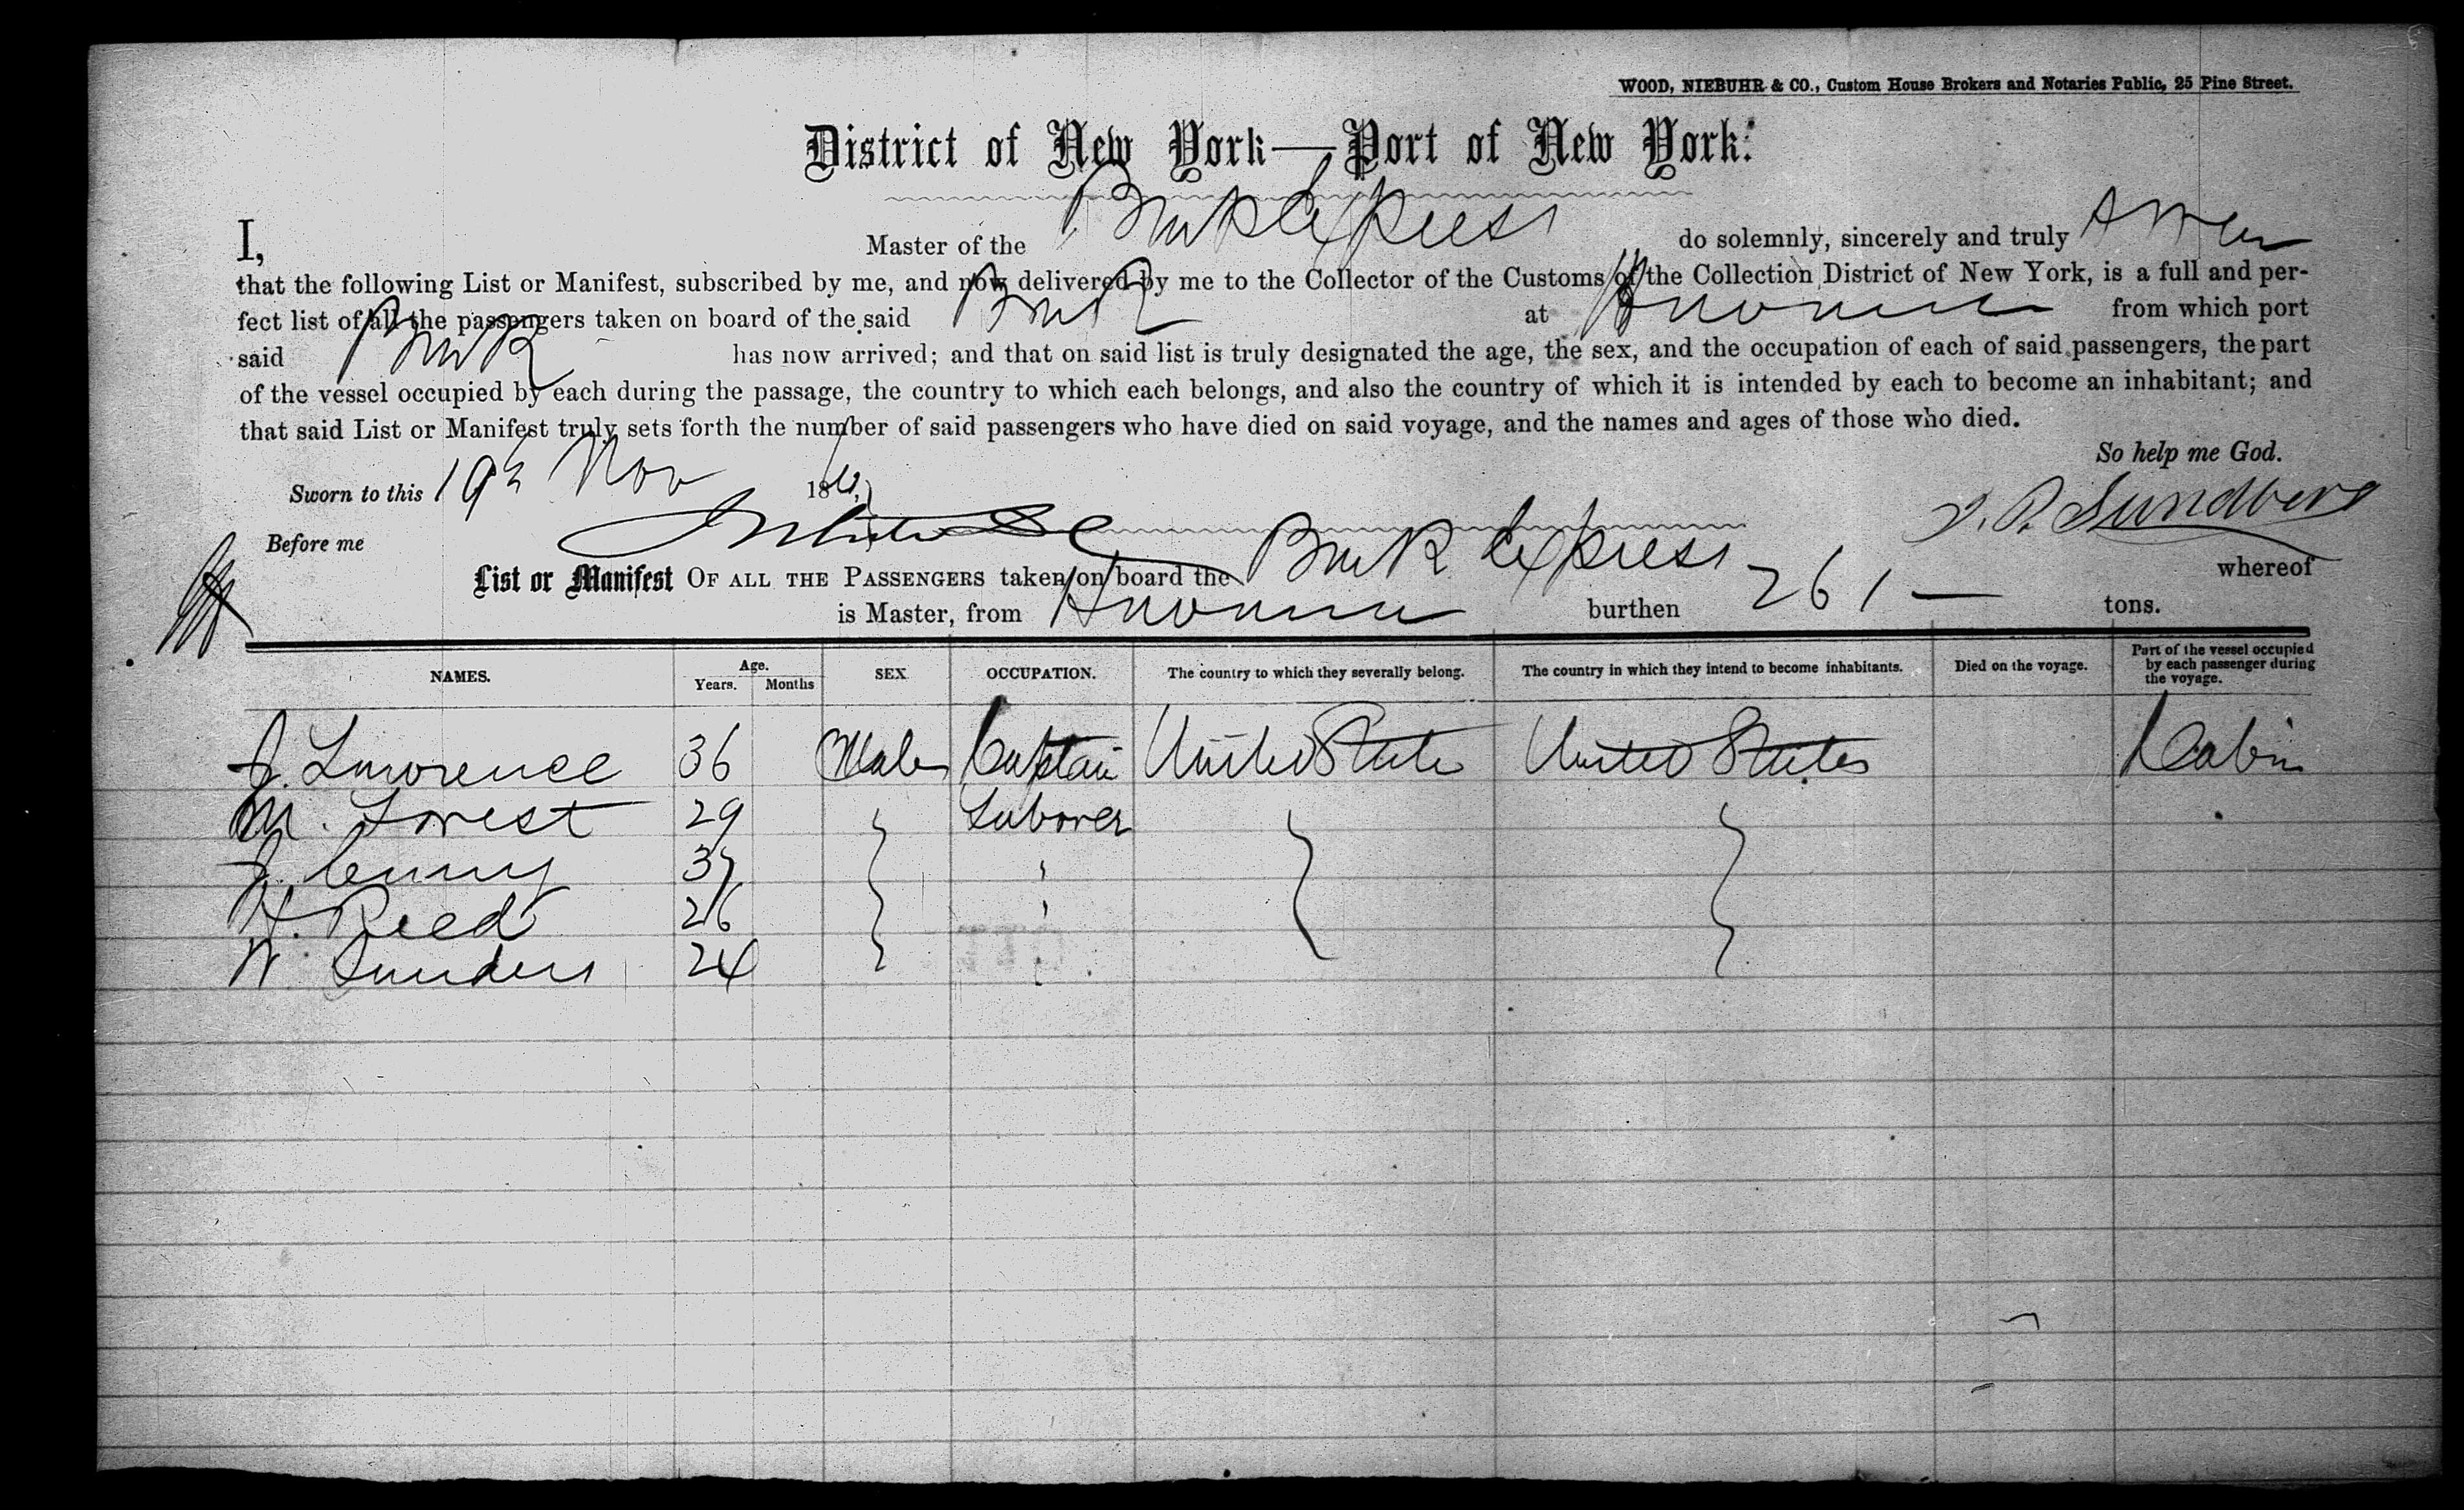 WOOD, NIEBUHR & CO., Custom House Brokers and Notaries Public, 25 Pine Street.
District of New York—Port of New York.
I, Master of the Bark Express do solemnly, sincerely and truly
that the following List or Manifest, subscribed by me, and now delivered by me to the Collector of the Customs of the Collection District of New York, is a full and per-
fect list of all the passengers taken on board of the said Bark at from which port
said Bark has now arrived; and that on said list is truly designated the age, the sex, and the occupation of each of said passengers, the part
of the vessel occupied by each during the passage, the country to which each belongs, and also the country of which it is intended by each to become an inhabitant; and
that said List or Manifest truly sets forth the number of said passengers who have died on said voyage, and the names and ages of those who died.
So help me God.
Sworn to this 19th Nov 18
Sundberg
Before me
List or Manifest OF ALL THE PASSENGERS taken on board the Bark Express whereof
is Master, from burthen 261 — tons.
NAMES. Age. Years. Months SEX OCCUPATION. The country to which they severally belong. The country in which they intend to become inhabitants. Died on the voyage. Part of the vessel occupied by each passenger during the voyage.
J. Lawrence 36 Male Captain United States United States Cabin
M. Forest 29 Laborer
J. 37 "
H. Reed 26 "
W. Sanders 24 "